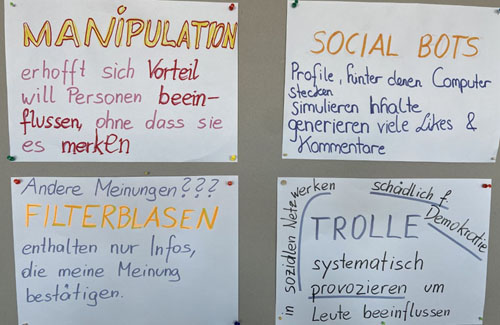 MANIPULATION
erhofft sich Vorteil
will Personen beein-
flussen, ohne dass sie
es merken
SOCIAL BOTS
Profile, hinter denen Computer
stecken
simulieren Inhalte
generieren viele Likes &
Kommentare
Andere Meinungen???
FILTERBLASEN
enthalten nur Infos,
die meine Meinung
bestätigen.
in sozialen Netzwerken
schädlich f
Demokratie
TROLLE
systematisch
provozieren um
Leute beeinflussen